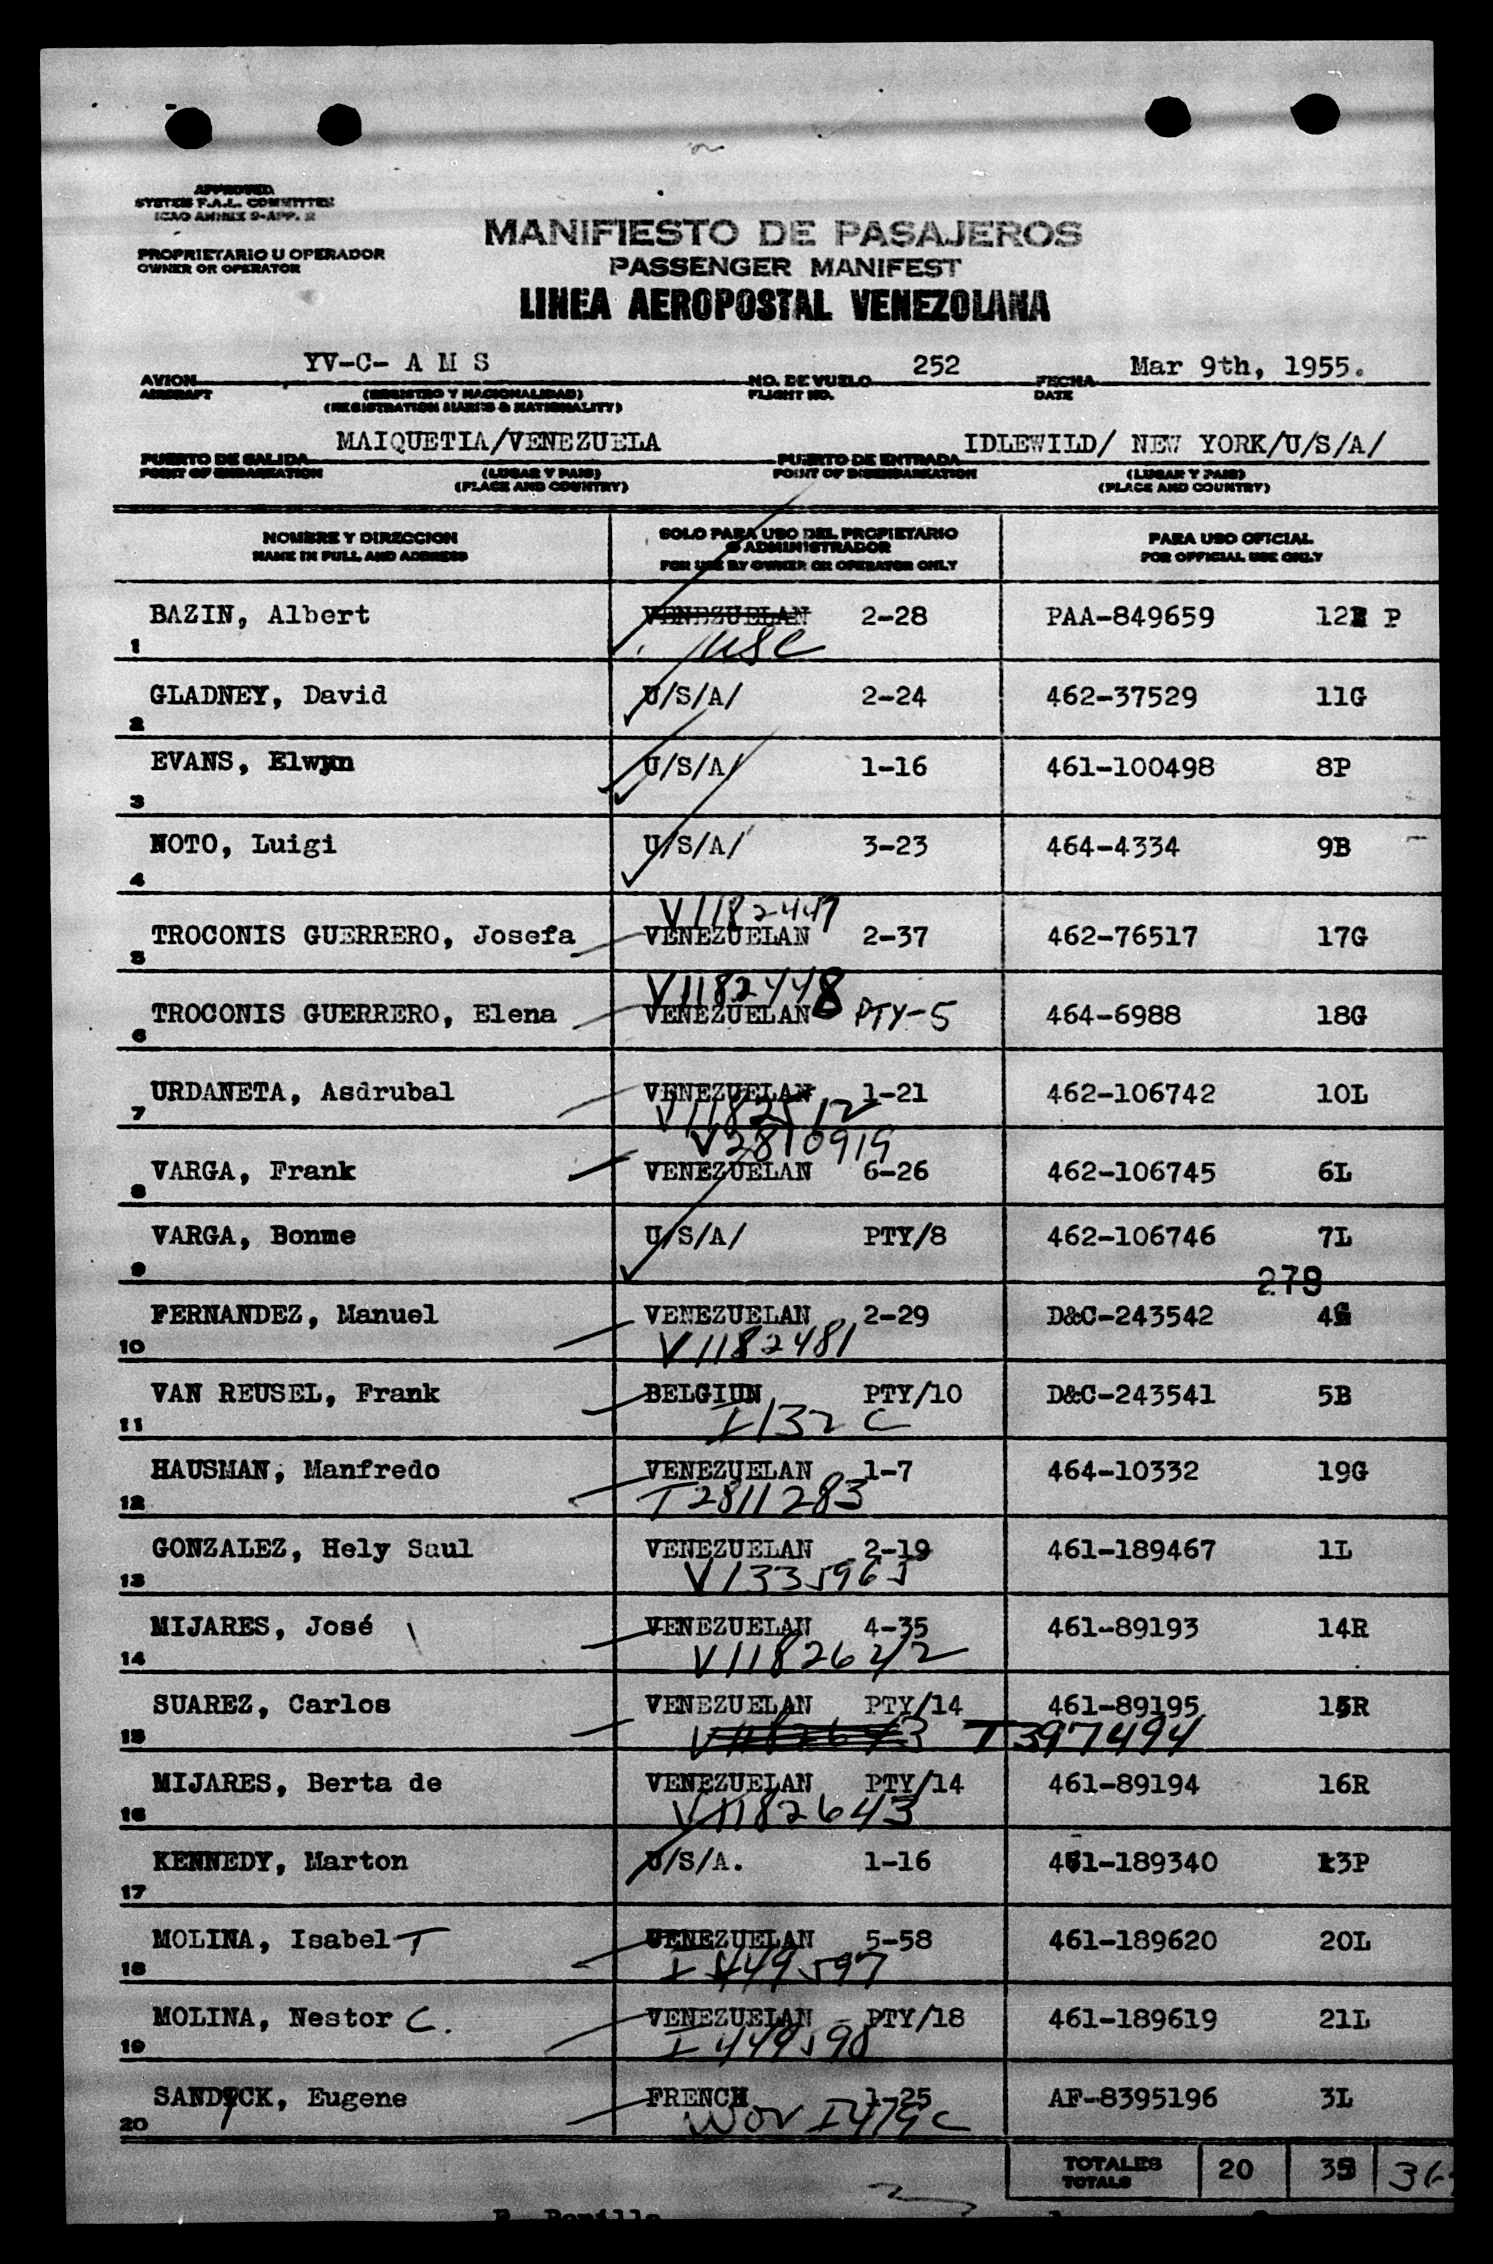 APPROVED
SYSTEM F.A.L. COMMITTEE
ICAO ANNEX 9-APP. 2
PROPRIETARIO U OPERADOR
OWNER OR OPERATOR
MANIFIESTO DE PASAJEROS
PASSENGER MANIFEST
LINEA AEROPOSTAL VENEZOLANA
YV-C- A M S 252 Mar 9th, 1955.
AVION NO. DE VUELO FECHA
AIRCRAFT (REGISTRO Y NACIONALIDAD) FLIGHT NO. DATE
(REGISTRATION MARKS & NATIONALITY)
MAIQUETIA/VENEZUELA IDLEWILD/ NEW YORK/U/S/A/
PUERTO DE SALIDA PUERTO DE ENTRADA
POINT OF EMBARKATION (LUGAR Y PAIS) POINT OF DISEMBARKATION (LUGAR Y PAIS)
(PLACE AND COUNTRY) (PLACE AND COUNTRY)
NOMBRE Y DIRECCION SOLO PARA USO DEL PROPIETARIO PARA USO OFICIAL
O ADMINISTRADOR
NAME IN FULL AND ADDRESS FOR USE BY OWNER OR OPERATOR ONLY FOR OFFICIAL USE ONLY
BAZIN, Albert VENEZUELAN 2-28 PAA-849659 12 P
1 USC
GLADNEY, David U/S/A/ 2-24 462-37529 11G
2
EVANS, Elwyn U/S/A/ 1-16 461-100498 8P
3
NOTO, Luigi U/S/A/ 3-23 464-4334 9B
4
V1182447
TROCONIS GUERRERO, Josefa VENEZUELAN 2-37 462-76517 17G
5
V1182448
TROCONIS GUERRERO, Elena VENEZUELAN PTY-5 464-6988 18G
6
URDANETA, Asdrubal VENEZUELAN 1-21 462-106742 10L
7 V1182512
V2810919
VARGA, Frank VENEZUELAN 6-26 462-106745 6L
8
VARGA, Bonme U/S/A/ PTY/8 462-106746 7L
9
278
FERNANDEZ, Manuel VENEZUELAN 2-29 D&C-243542 4G
10 V1182481
VAN REUSEL, Frank BELGIUN PTY/10 D&C-243541 5B
11 I132 C
HAUSMAN, Manfredo VENEZUELAN 1-7 464-10332 19G
12 T2811283
GONZALEZ, Hely Saul VENEZUELAN 2-19 461-189467 1L
13 V1335965
MIJARES, José VENEZUELAN 4-35 461-89193 14R
14 V1182642
SUAREZ, Carlos VENEZUELAN PTY/14 461-89195 15R
15 V1182643 T397494
MIJARES, Berta de VENEZUELAN PTY/14 461-89194 16R
16 V1182643
KENNEDY, Marton U/S/A. 1-16 461-189340 13P
17
MOLINA, Isabel T VENEZUELAN 5-58 461-189620 20L
18 I449597
MOLINA, Nestor C. VENEZUELAN PTY/18 461-189619 21L
19 I449598
SANDYCK, Eugene FRENCH 1-25 AF-8395196 3L
20 WOV I479C
TOTALES 20 35 36
TOTALS